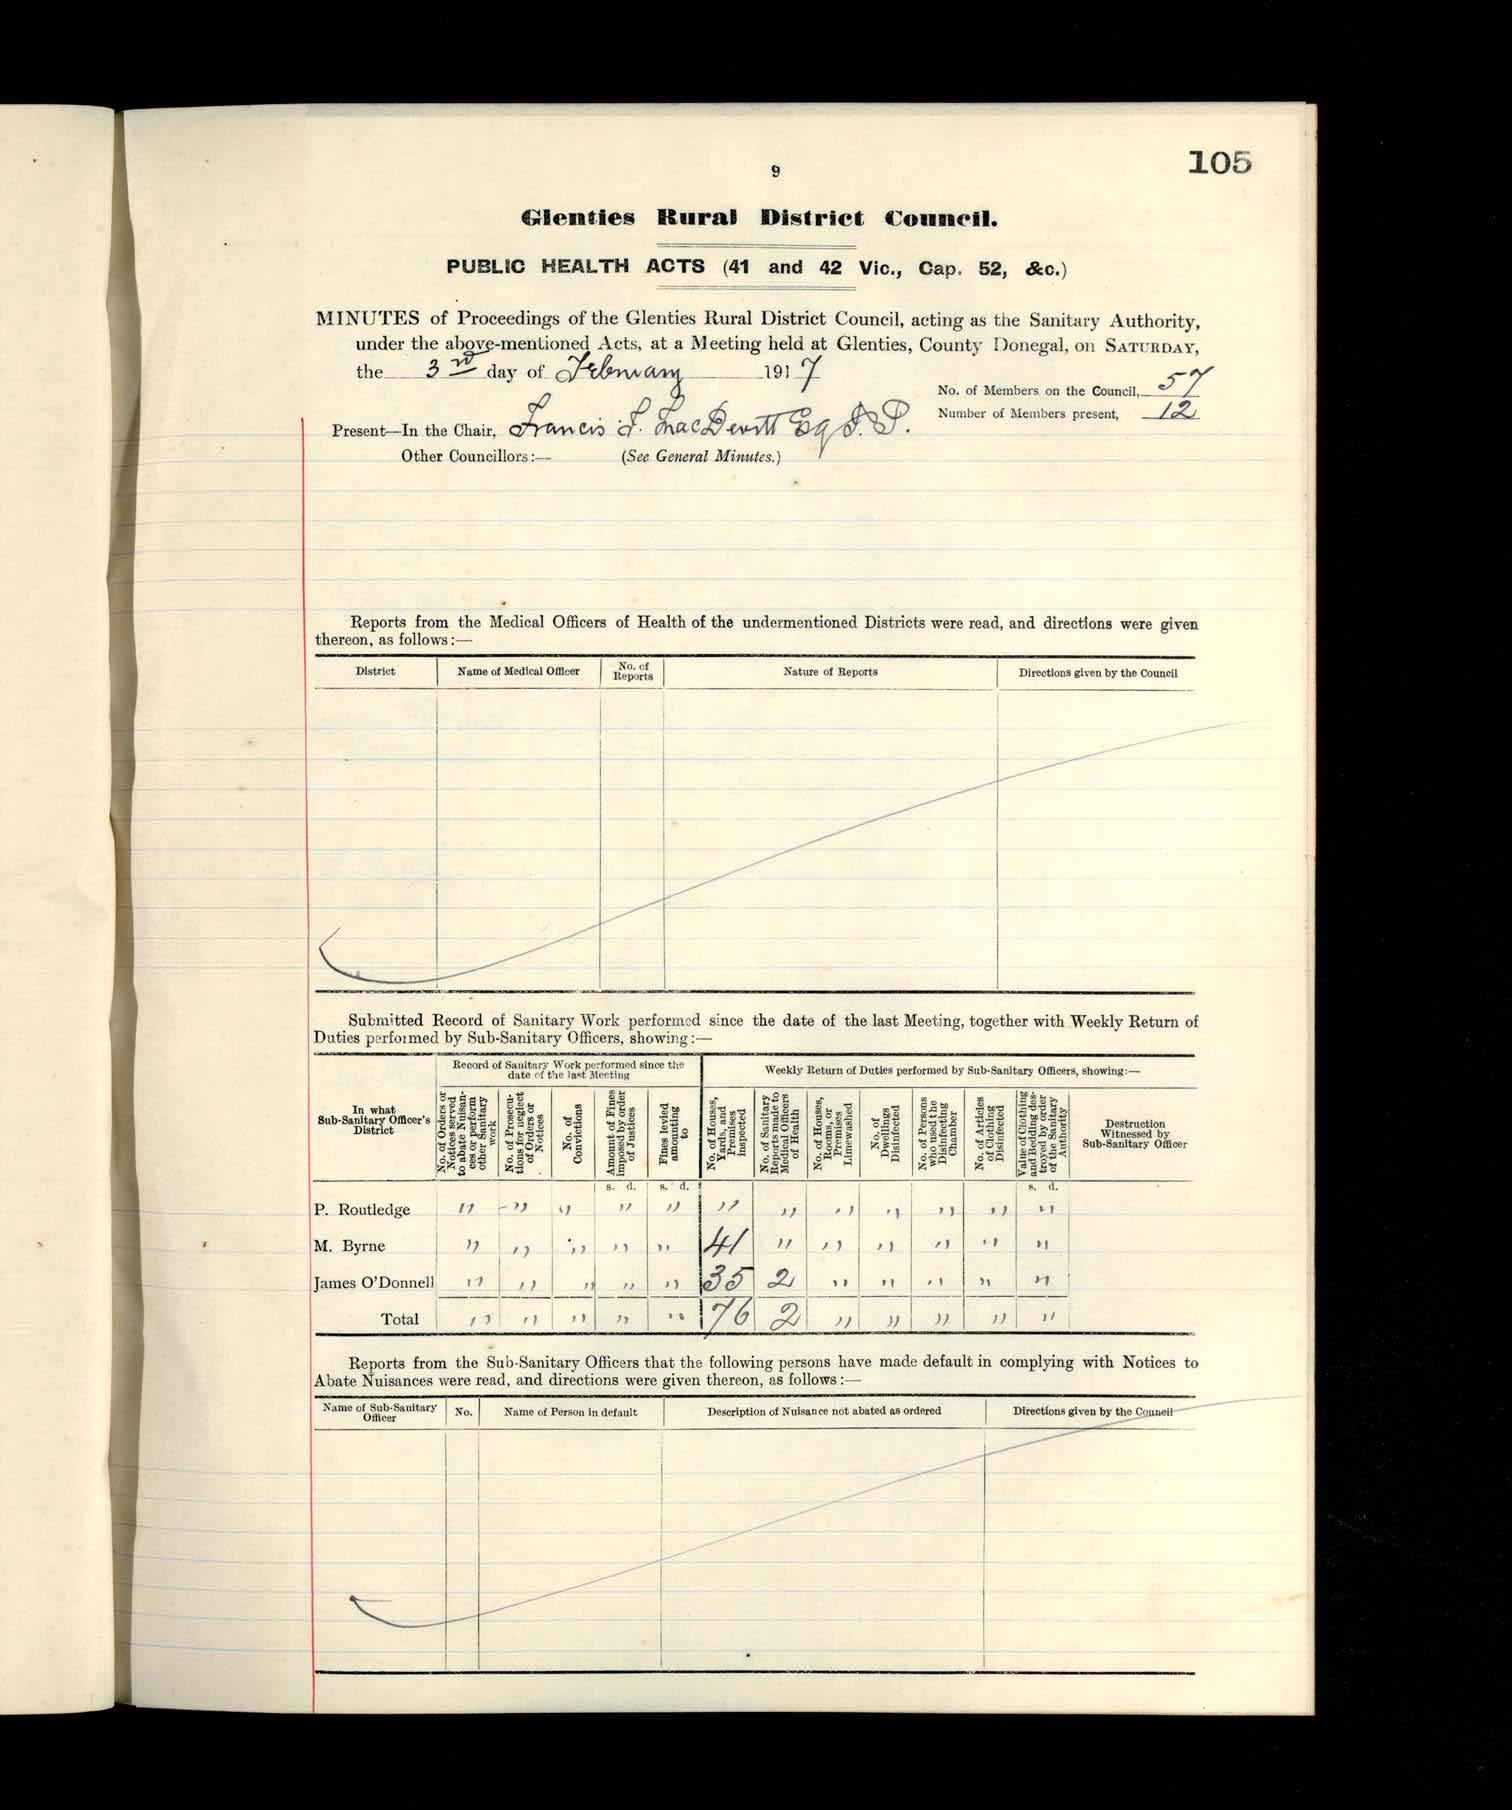 105
9
Glenties Rural District Council.
PUBLIC HEALTH ACTS (41 and 42 Vic., Cap. 52, &c.)
MINUTES of Proceedings of the Glenties Rural District Council, acting as the Sanitary Authority,
under the above-mentioned Acts, at a Meeting held at Glenties, County Donegal, on SATURDAY,
the 3rd day of February 1917
No. of Members on the Council, 57
Number of Members present, 12
Present—In the Chair, Francis F. MacDevitt Esq J.P.
Other Councillors:— (See General Minutes.)
Reports from the Medical Officers of Health of the undermentioned Districts were read, and directions were given
thereon, as follows:—
District Name of Medical Officer No. of Reports Nature of Reports Directions given by the Council
Submitted Record of Sanitary Work performed since the date of the last Meeting, together with Weekly Return of
Duties performed by Sub-Sanitary Officers, showing:—
Record of Sanitary Work performed since the
date of the last Meeting
Weekly Return of Duties performed by Sub-Sanitary Officers, showing:—
In what
Sub-Sanitary Officer's
District
No. of Orders or
Notices served
to abate Nuisan-
ces or perform
other Sanitary
work
No. of Prosecu-
tions for neglect
of Orders or
Notices
No. of
Convictions
Amount of Fines
imposed by order
of Justices
Fines levied
amounting
to
No. of Houses,
Yards, and
Premises
inspected
No. of Sanitary
Reports made to
Medical Officers
of Health
No. of Houses,
Rooms, or
Premises
Limewashed
No. of
Dwellings
Disinfected
No. of Persons
who used the
Disinfecting
Chamber
No. of Articles
of Clothing
Disinfected
Value of Clothing
and Bedding des-
troyed by order
of the Sanitary
Authority
Destruction
Witnessed by
Sub-Sanitary Officer
s. d. s. d. s. d.
P. Routledge " " " " " " " " " " " "
M. Byrne " " " " " 41 " " " " " "
James O'Donnell " " " " " 35 2 " " " " "
Total " " " " " 76 2 " " " " "
Reports from the Sub-Sanitary Officers that the following persons have made default in complying with Notices to
Abate Nuisances were read, and directions were given thereon, as follows:—
Name of Sub-Sanitary
Officer
No. Name of Person in default Description of Nuisance not abated as ordered Directions given by the Council